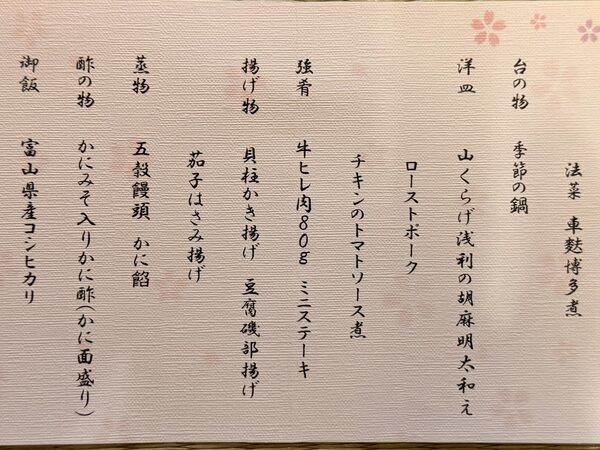 法菜　車麩博多煮
台の物　季節の鍋
洋皿　山くらげ浅利の胡麻明太和え
ローストポーク
チキンのトマトソース煮
強肴　牛ヒレ肉80g　ミニステーキ
揚げ物　貝柱かき揚げ　豆腐磯部揚げ
茄子はさみ揚げ
蒸物　五穀饅頭　かに餡
酢の物　かにみそ入りかに酢(かに面盛り)
御飯　富山県産コシヒカリ